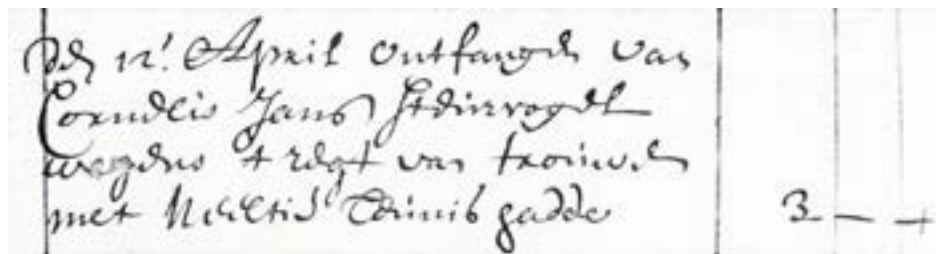 Den 12.' April ontfangen van
Cornelis Jans Stuervogel
wegens t regt van trouwen
met Neeltie Teunis gadde 3 — —